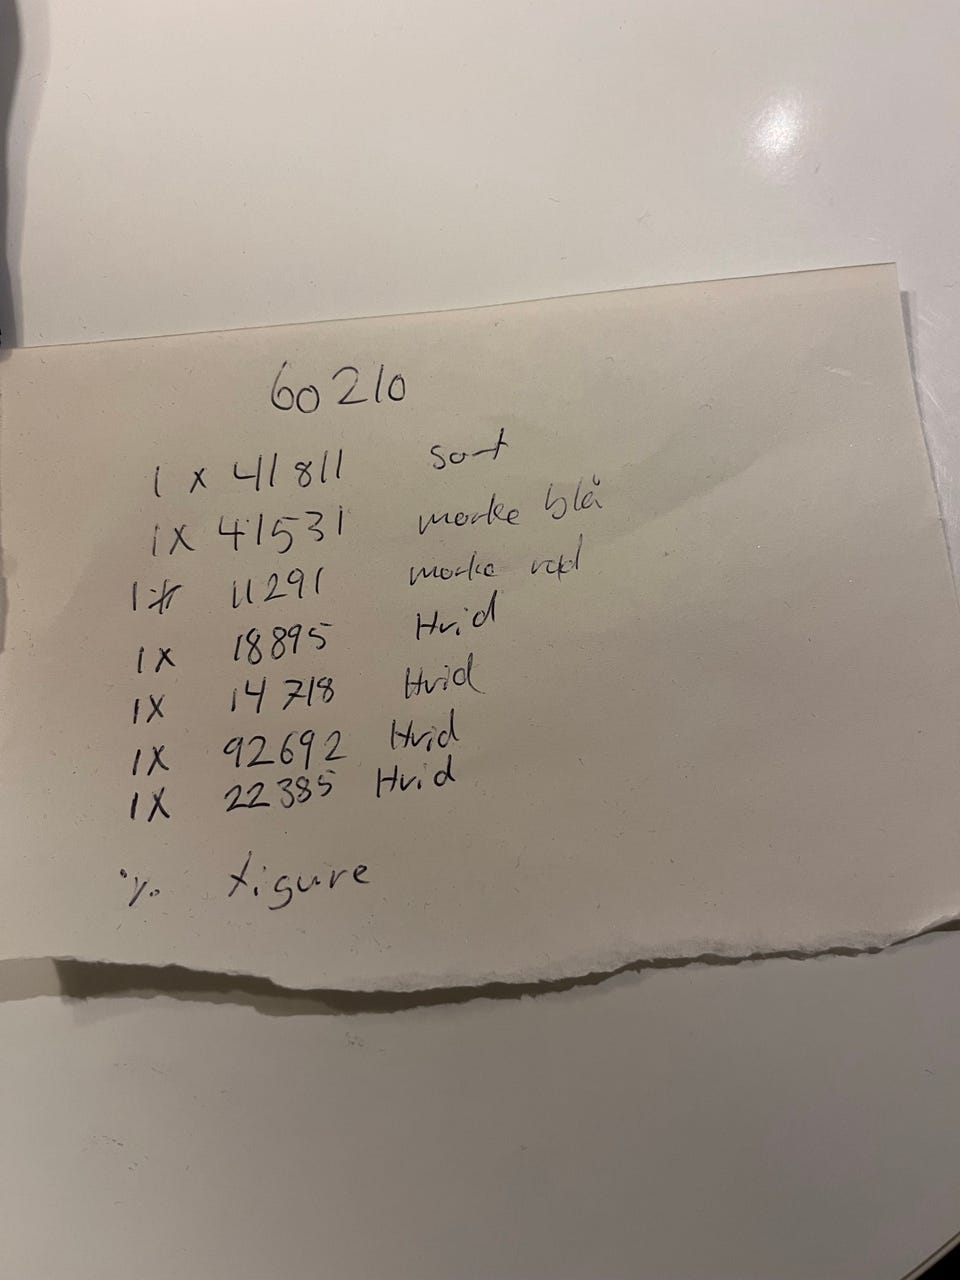 60210
1 x 41811 sort
1x 41531 mørke blå
1x 11291 mørke rød
1x 18895 Hvid
1X 14718 Hvid
1X 92692 Hvid
1X 22385 Hvid
% figure